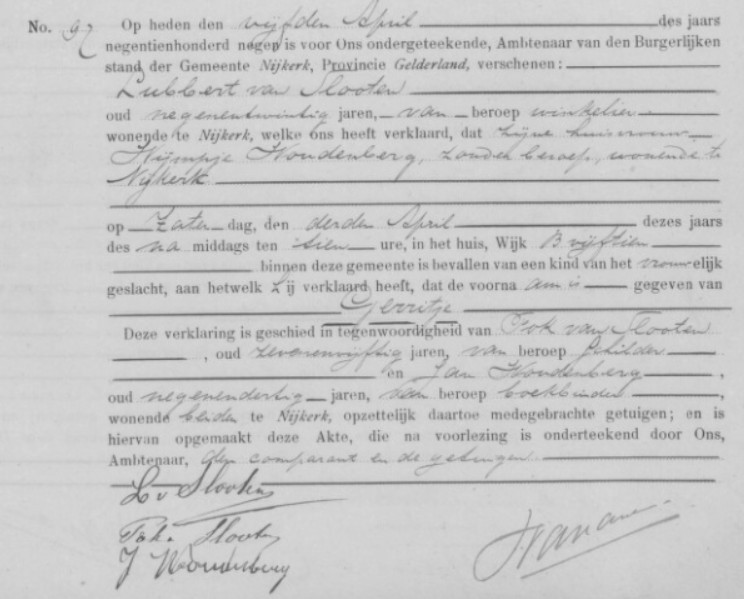 No. 97 Op heden den vijfden April des jaars
negentienhonderd negen is voor Ons ondergeteekende, Ambtenaar van den Burgerlijken
stand der Gemeente Nijkerk, Provincie Gelderland, verschenen:
Lubbert van Slooten
oud negenentwintig jaren, van beroep winkelier
wonende te Nijkerk, welke ons heeft verklaard, dat zijne huisvrouw
Wijmpje Woudenberg, zonder beroep, wonende te
Nijkerk
op Zaterdag, den derden April dezes jaars
des na middags ten tien ure, in het huis, Wijk B vijftien
binnen deze gemeente is bevallen van een kind van het vrouwelijk
geslacht, aan hetwelk zij verklaard heeft, dat de voornaam is gegeven van
Gerritje
Deze verklaring is geschied in tegenwoordigheid van van Slooten
, oud zevenenvijftig jaren, van beroep schilder
en Jan Woudenberg,
oud negenendertig jaren, van beroep boekbinder,
wonende beiden te Nijkerk, opzettelijk daartoe medegebrachte getuigen; en is
hiervan opgemaakt deze Akte, die na voorlezing is onderteekend door Ons,
Ambtenaar, den comparant en de getuigen.
L v Slooten
Slooten
J Woudenberg